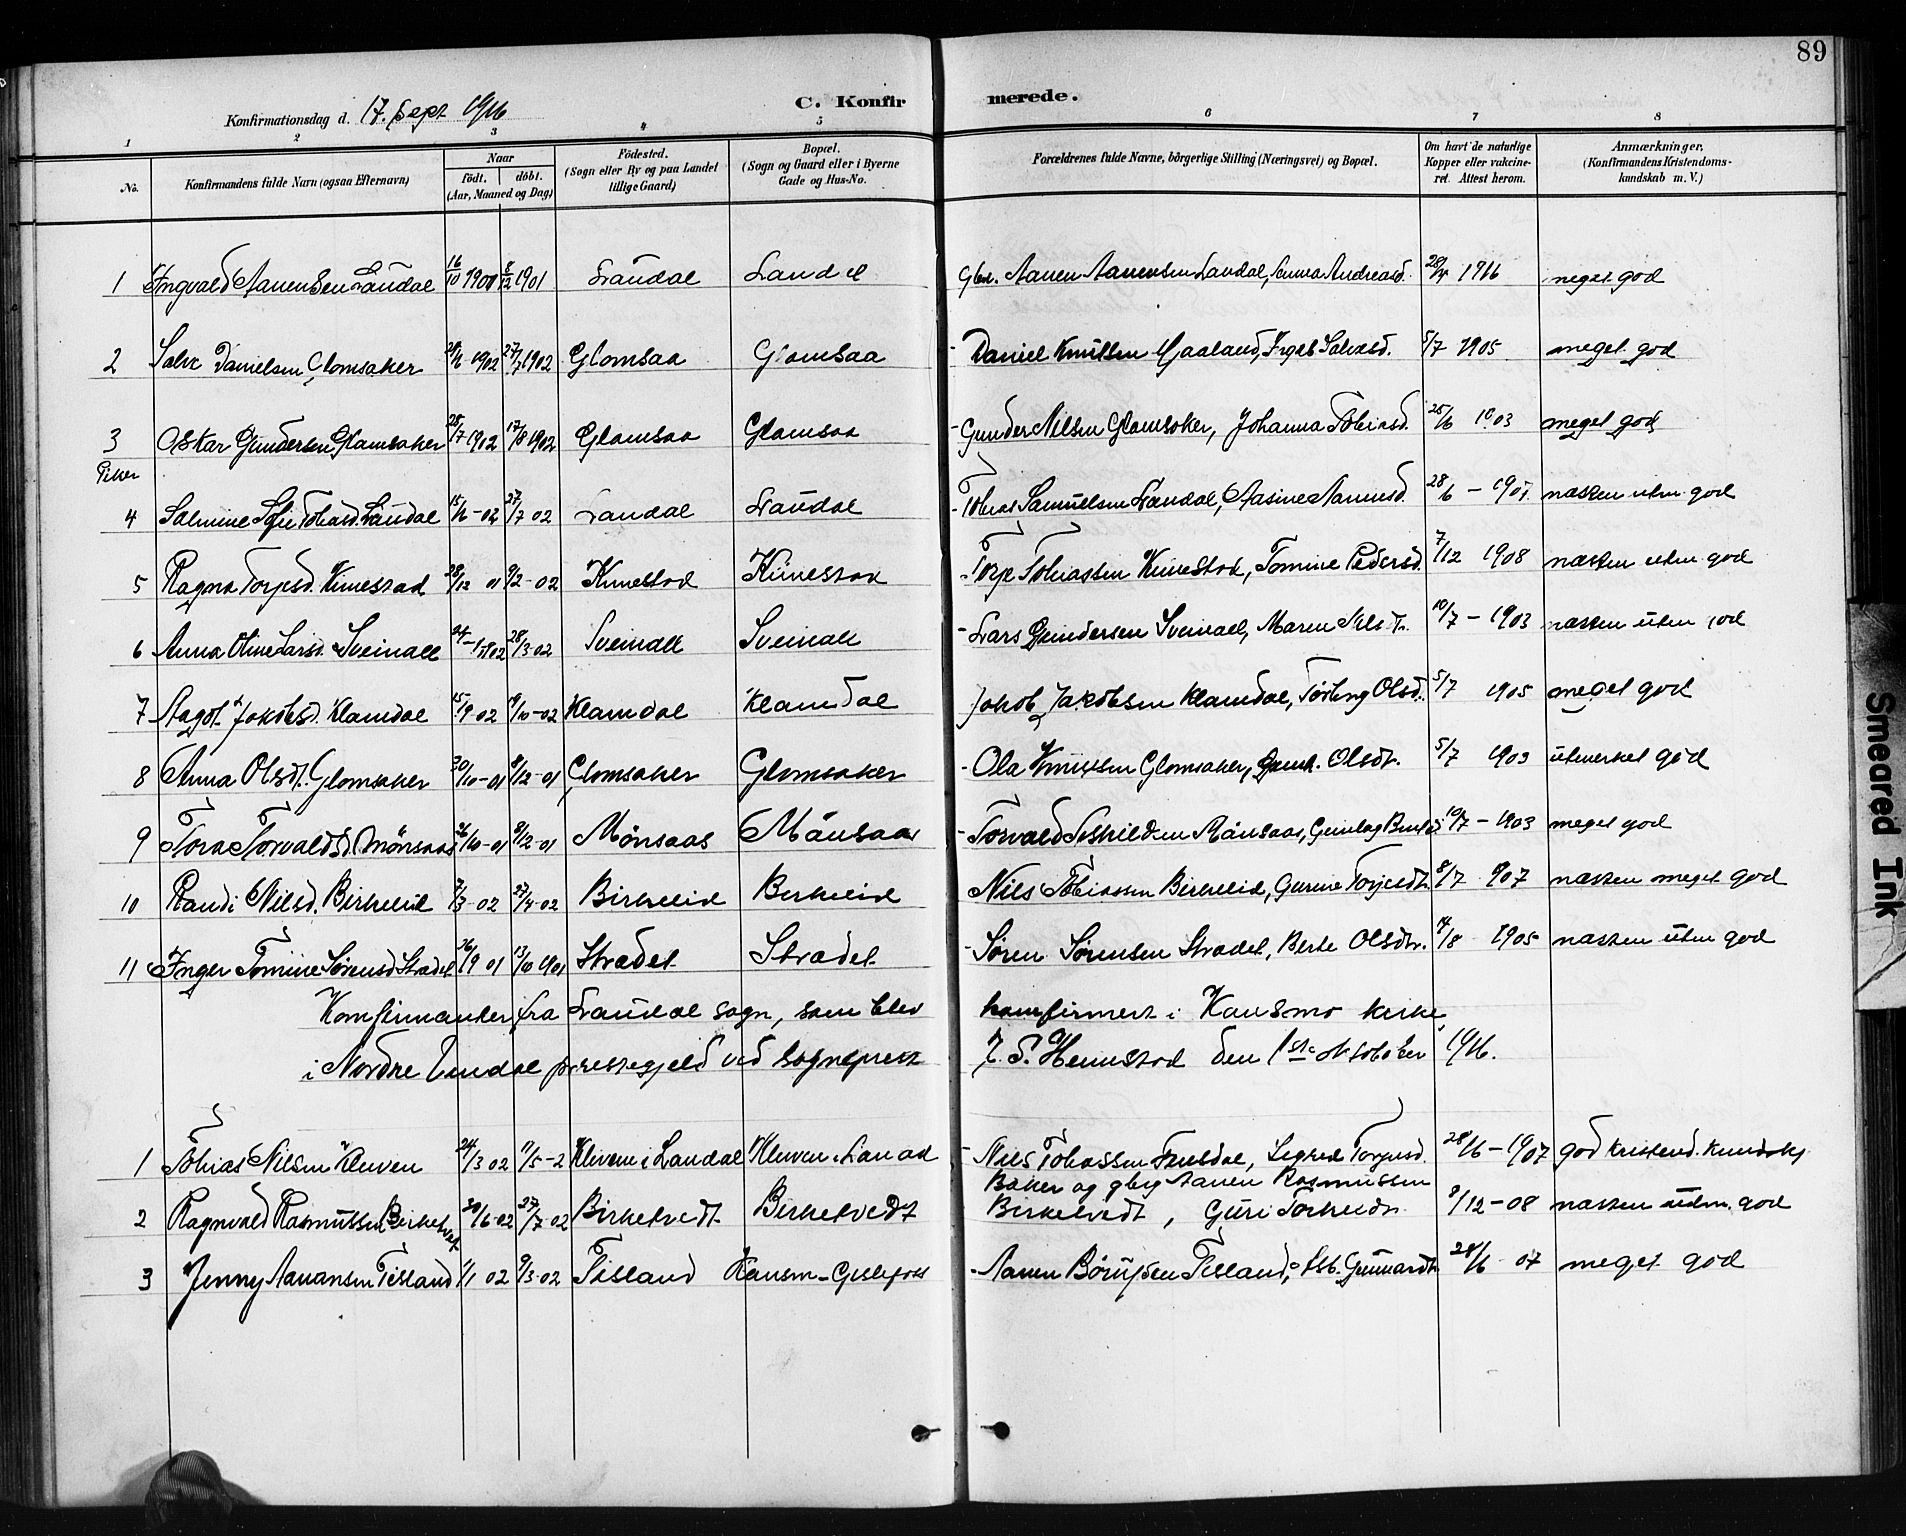 89
C. Konfirmerede.
Konfirmationsdag d. 17. Sept 1916
1 2 3 4 5 6 7 8
No. Konfirmandens fulde Navn (ogsaa Efternavn) Naar födt. döbt. (Aar, Maaned og Dag) Födested. (Sogn eller By og paa Landet tillige Gaard) Bopæl. (Sogn og Gaard eller i Byerne Gade og Hus-No. Forældrenes fulde Navne, börgerlige Stilling (Næringsvei) og Bopæl. Om havt de naturlige Kopper eller vakcineret. Attest herom. Anmærkninger, (Konfirmandens Kristendomskundskab m. V.)
1 Ingvald Aanensen Laudal 16/10 1901 8/12 1901 Laudal Laudal Gbr. Aanen Aanensen Laudal, Andreasd. 1916 meget god
2 Salve Danielsen Glomsaker 1902 27/7 1902 Glomsaa Glomsaa - Daniel Knutsen Haaland, Salvesd. 5/7 1905 meget god
3 Oskar Gundersen Glomsaker 28/7 1902 17/8 1902 Glomsaa Glomsaa - Gunder Nilsen Glomsaker, Johanna Tobiasd. 25/6 1903 meget god
Piker
4 Salmine Sofie Tobiasd. Laudal 15/6-02 27/7 02 Laudal Laudal - Tobias Samuelsen Laudal, Aasine Aanensd. 28/6 - 1907 næsten utm. god
5 Ragna Torjesd. Kimestad 28/12 01 9/2-02 Kimestad Kimestad - Torje Tobiassen Kimestad, Tomine Pedersd. 7/12 1908 næsten utm god
6 Anna Oline Larsd. Sveinall 28/3-02 Sveinall Sveinall - Lars Gundersen Sveinall, Maren Nilsdt. 10/7 - 1903 næsten utm god
7 Aagot Jakobsd. Klamdal 15/9 02 19/10-02 Klamdal Klamdal Jakob Jakobsen Klamdal, Torborg Olsd. 5/7 1905 meget god
8 Anna Olsdt. Glomsaker 30/10-01 8/12-01 Glomsaker Glomsaker - Ola Knutsen Glomsaker, Olsdt. 5/7 1903 utmerket god
9 Tora Torvaldsd. Mönsaas 26/10-01 8/12-01 Mönsaas Mönsaas - Torvald Teskildsen Mönsaas, Gunlag 10/7 - 1903 meget god
10 Randi Nilsd. Birkelid 7/3-02 27/4-02 Birkelid Birkelid Nils Tobiassen Birkelid, Gurine Torjesdt. 8/7 907 næsten meget god
11 Inger Tomine Sørensd. Strædet 26/9 01 13/10 1901 Strædet Strædet - Søren Sørensen Strædet, Berte Olsdtr. 14/8 1905 næsten utm god
Konfirmanter fra Laudal sogn, som blev konfirmert i Konsmo kirke
i Nordre Undal prestegjeld ved sogneprest Heimstad den 1ste oktober 1916.
1 Tobias Nilsen Kleven 24/3 02 11/5-2 Klevene i Laudal Kleven i Laudal - Nils Tobiassen Sigrid Torjusd. 28/6 - 1907 god kristend. kundsk.
2 Ragnvald Rasmussen Birketvet 30/6-02 27/7-02 Birketvedt Birketvedt Baker og gbr Aanen Rasmussen
Birketvedt, Guri 9/12-08 næsten utm. god
3 Jenny Aanansen Fidsland 1/1 02 9/3-02 Konsm- - Aanen Børufsen Gunnardt. 28/6 07 meget god
Smeared Ink